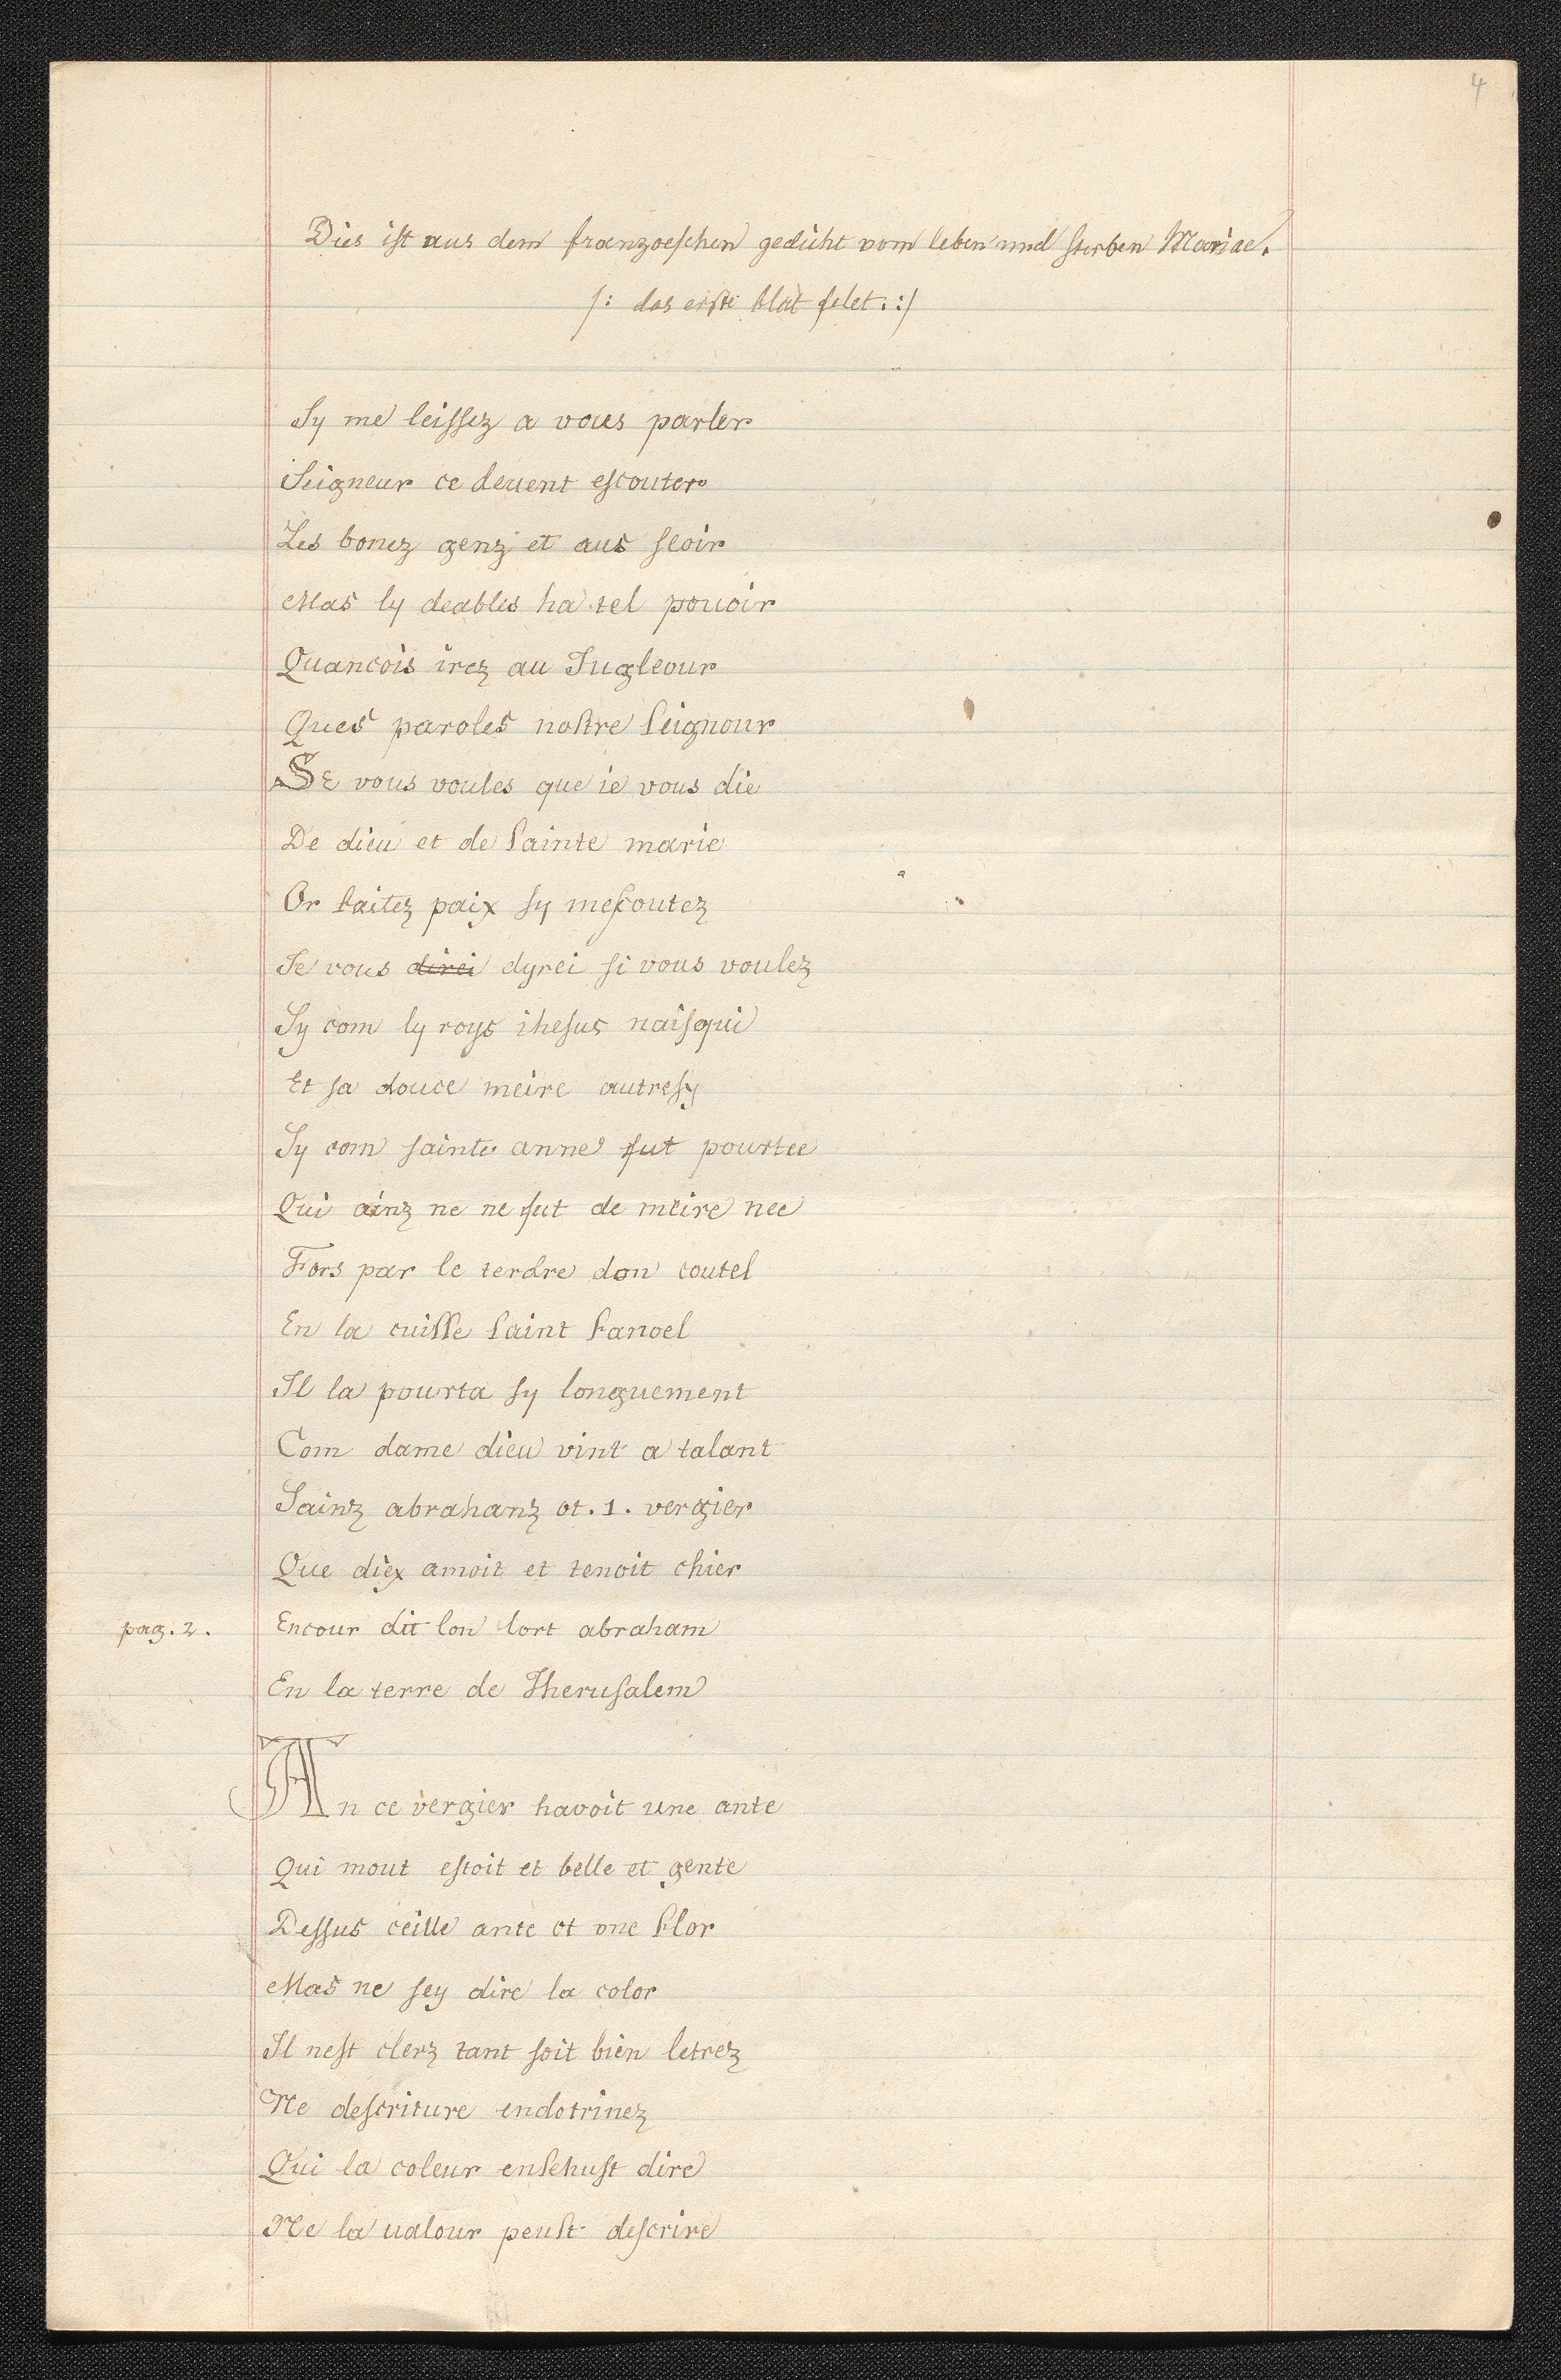 4
Dies ist aus dem franzoeſchen gedicht vom leben und ſterben Mariae.
/: das erſte blat felet. :/
Sy me leiſſez a vous parler
Seigneur ce deuent eſcouter
Les bonez genz et aus ſeoir
Mas ly deables ha tel pouoir
Quancois irez au Jugleour
Ques paroles noſtre ſeignour
SE vous voules que ie vous die
De dieu et de ſainte marie
Or faitez paix ſy meſcoutez
Je vous ~~direi~~ dyrei ſi vous voulez
Sy com ly roys iheſus naiſqui
Et ſa douce meire autreſy
Sy com ſainte anne fut pourtee
Qui ainz ne ne fut de meire nee
Fors par le terdre don coutel
En la cuiſſe ſaint fanoel
Il la pourta ſy longuement
Com dame dieu vint a talant
Sainz abrahanz ot .1. vergier
Que diex amoit et tenoit chier
pag. 2. Encour dit lon lort abraham
En la terre de Iheruſalem
An ce vergier havoit une ante
Qui mout eſtoit et belle et gente
Deſſus ceille ante ot vne flor
Mas ne ſey dire la color
Il neſt clerz tant ſoit bien letrez
Ne deſcriture endotrinez
Qui la coleur enſehuſt dire
Ne la ualour peuſt deſcrire